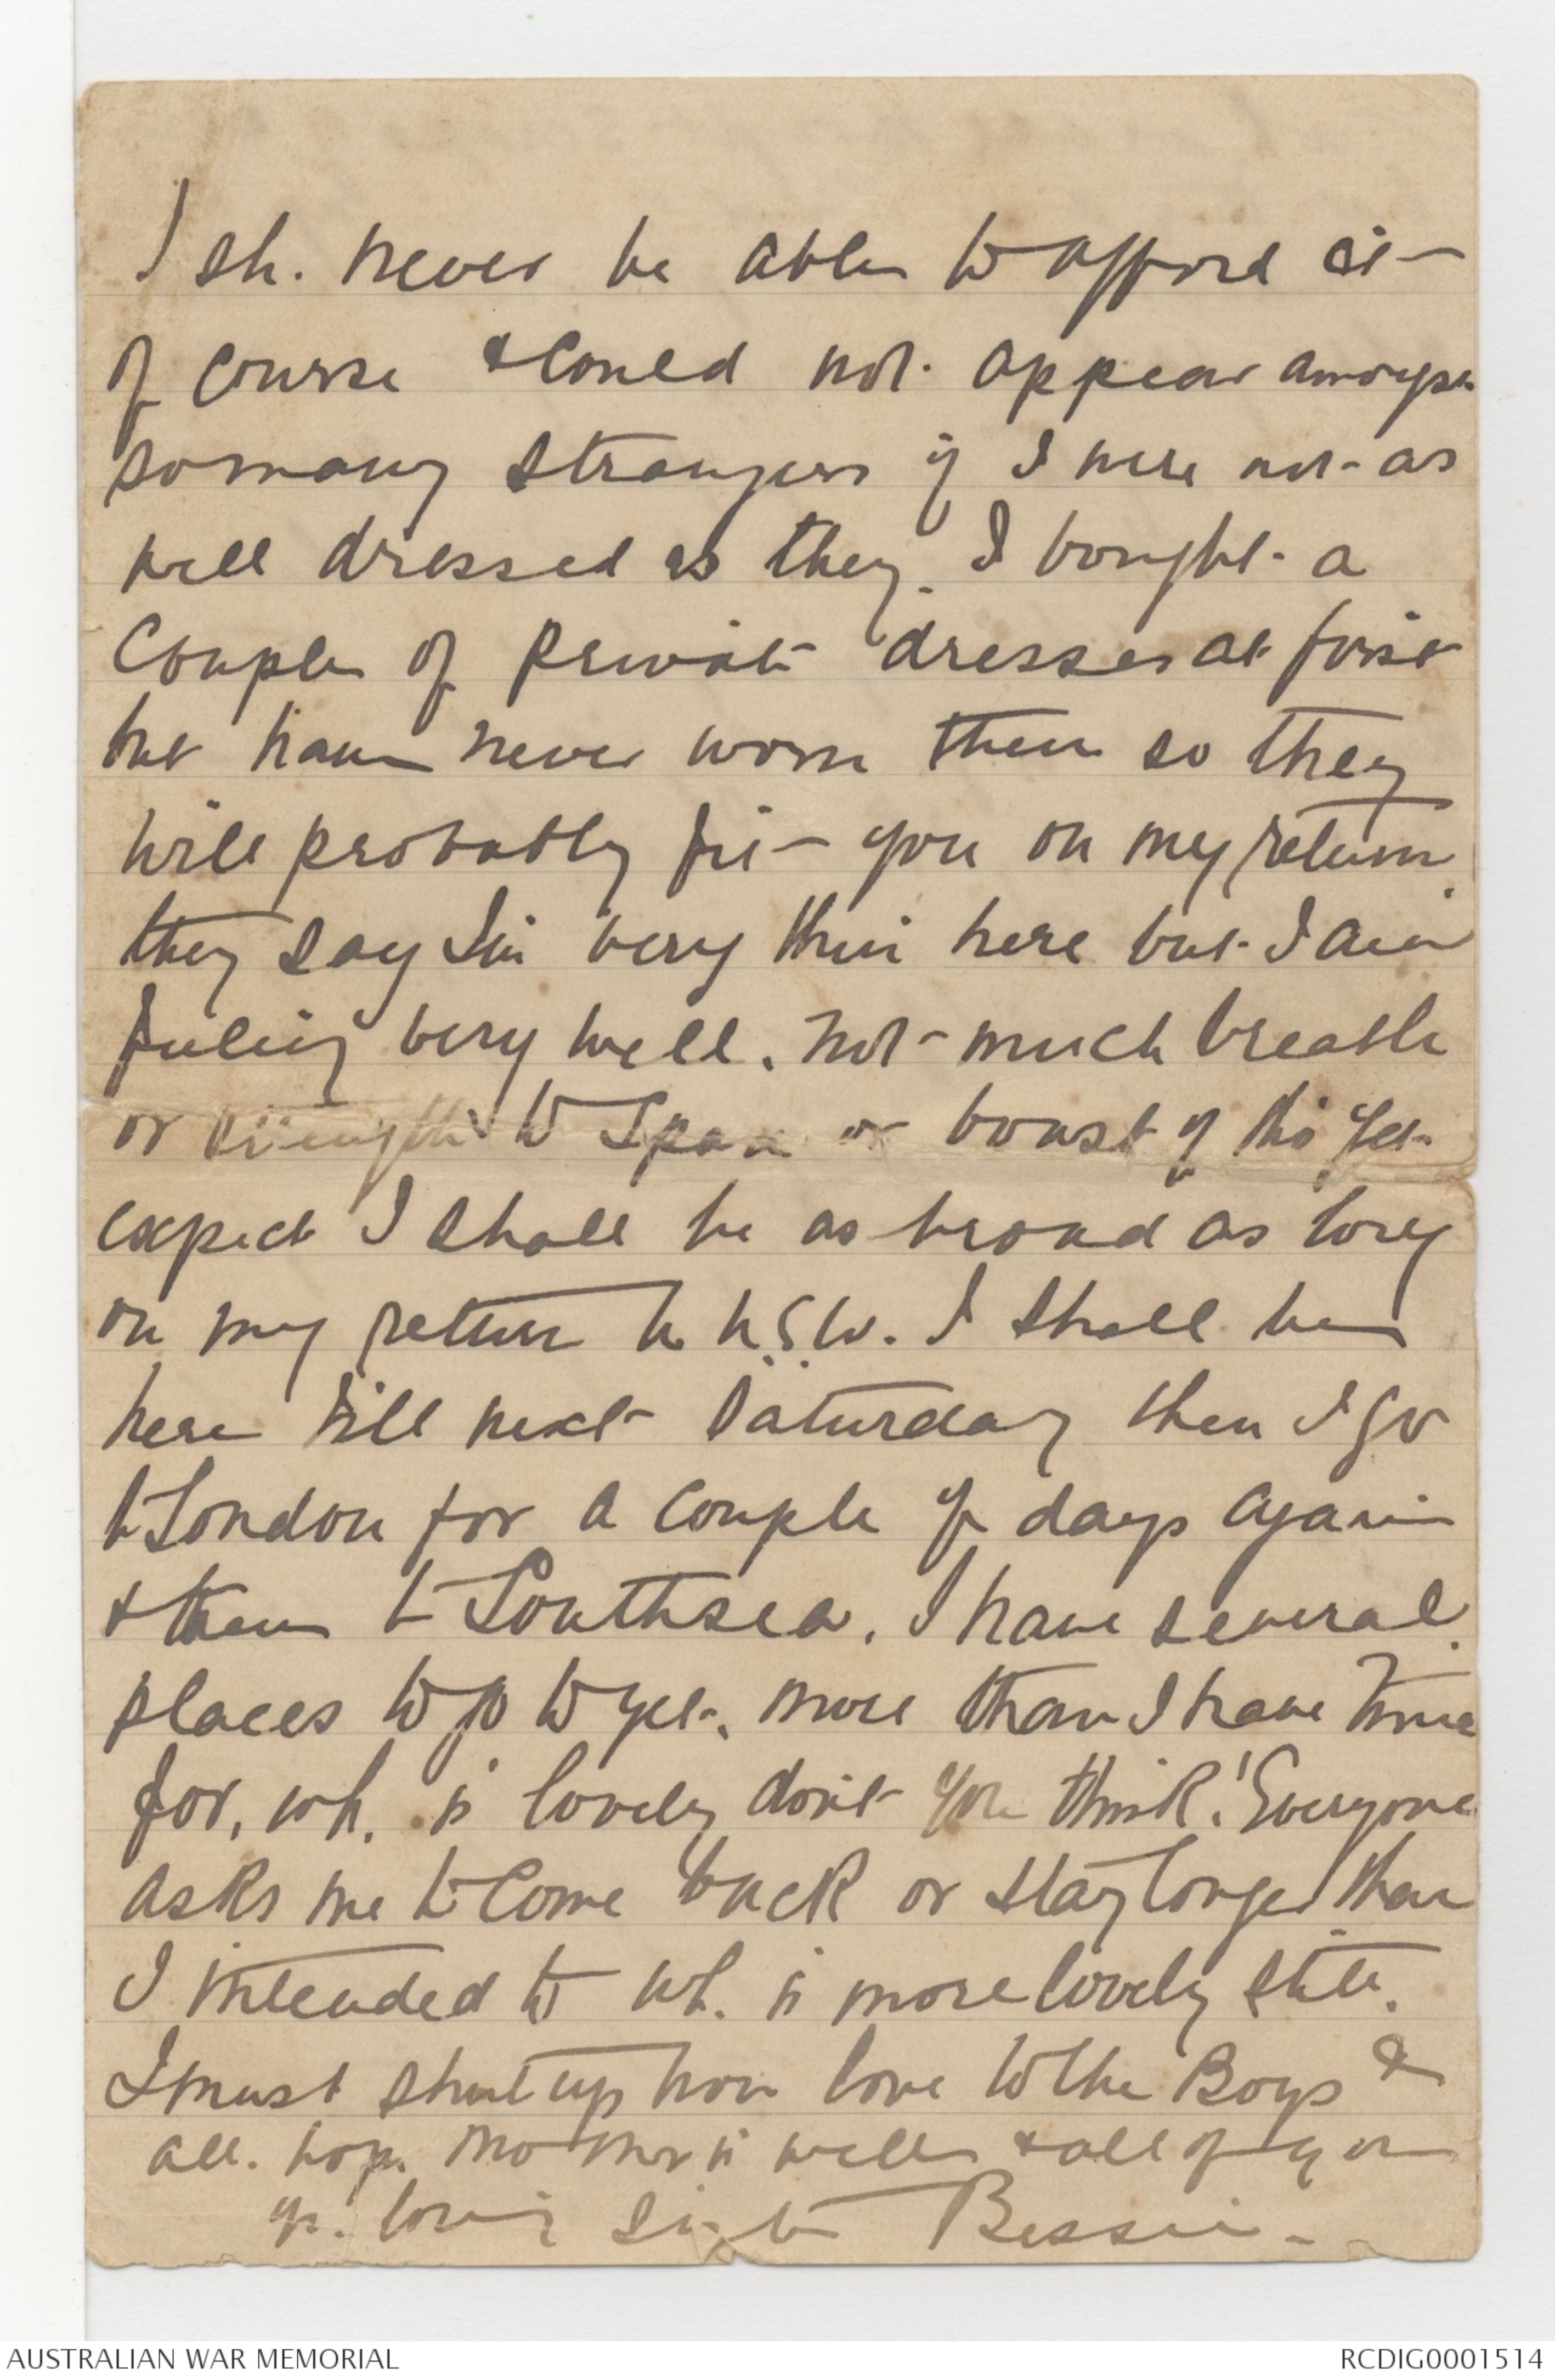 I sh. never be able to afford it
of course & could not appear amongst
so many strangers if I were not as
well dressed as they. I bought a
Couple of private dresses at first
but have never worn them so they
will probably fit you on my return.
they say I'm very thin here but I am
feeling very well. Not much breath
or strength to spare or boast of tho' yet
expect I shall be as broad as long
on my return to N.S.W. I shall be
here till next Saturday then I go
to London for a couple of days again
& then to Southsea. I have several
places to go to yet. more than I have time
for, wh. is lovely don't you think! Everyone
asks me to come back or stay longer than
I intended to wh. is more lovely still.
I must shut up now love to the Boys &
all. hope Mother is well & all of you
yr. loving sister Bessie -
AUSTRALIAN WAR MEMORIAL
RCDIG0001514